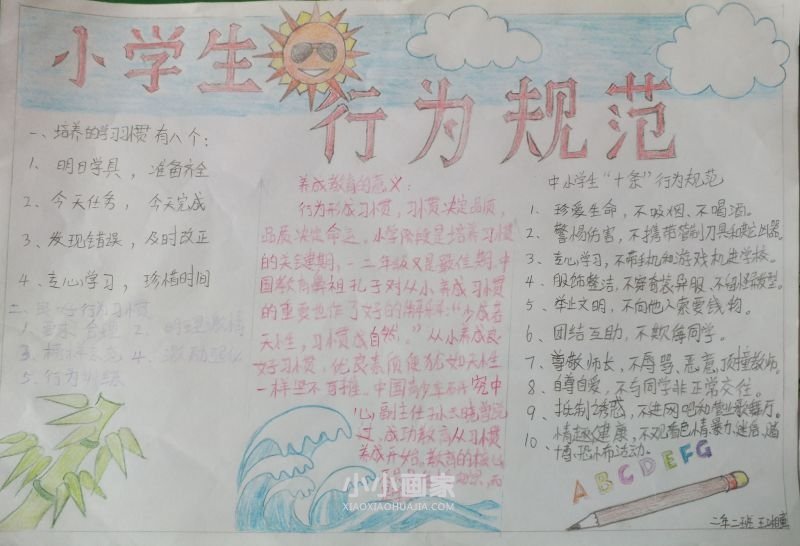 小学生
行为规范
一、培养的学习习惯有八个：
1、明日学具，准备齐全
2、今天任务，今天完成
3、发现错误，及时改正
4、专心学习，珍惜时间
二、良好行为习惯
5、行为训练
养成教育的意义：
行为形成习惯，习惯决定品质，
品质决定命运。小学阶段是培养习惯
的关键期，一二年级又是最佳期。中
国教育鼻祖孔子对从小养成习惯
的重要也作了好的解释："少成若
天性，习惯成自然。"从小养成良
好习惯，优良素质便犹如天性
一样坚不可摧。中国青少年研究中
心副主任孙云晓曾说
过，成功教育从习惯
养成开始。教育的核心
中小学生"十条"行为规范
1、珍爱生命，不吸烟、不喝酒。
2、警惕伤害，不携带管制刀具和攻击器。
3、专心学习，不带手机和游戏机进学校。
4、服饰整洁，不穿奇装异服、不留怪异发型。
5、举止文明，不向他人索要钱物。
6、团结互助，不欺侮同学。
7、尊敬师长，不辱骂、恶意顶撞教师。
8、自尊自爱，不与同学非正常交往。
9、抵制诱惑，不进网吧和营业歌舞厅。
10、情趣健康，不观看色情、暴力、迷信、赌
博、恐怖活动。
ABCDEFG
二年二班 王
小小画家
XIAOXIAOHUAJIA.COM